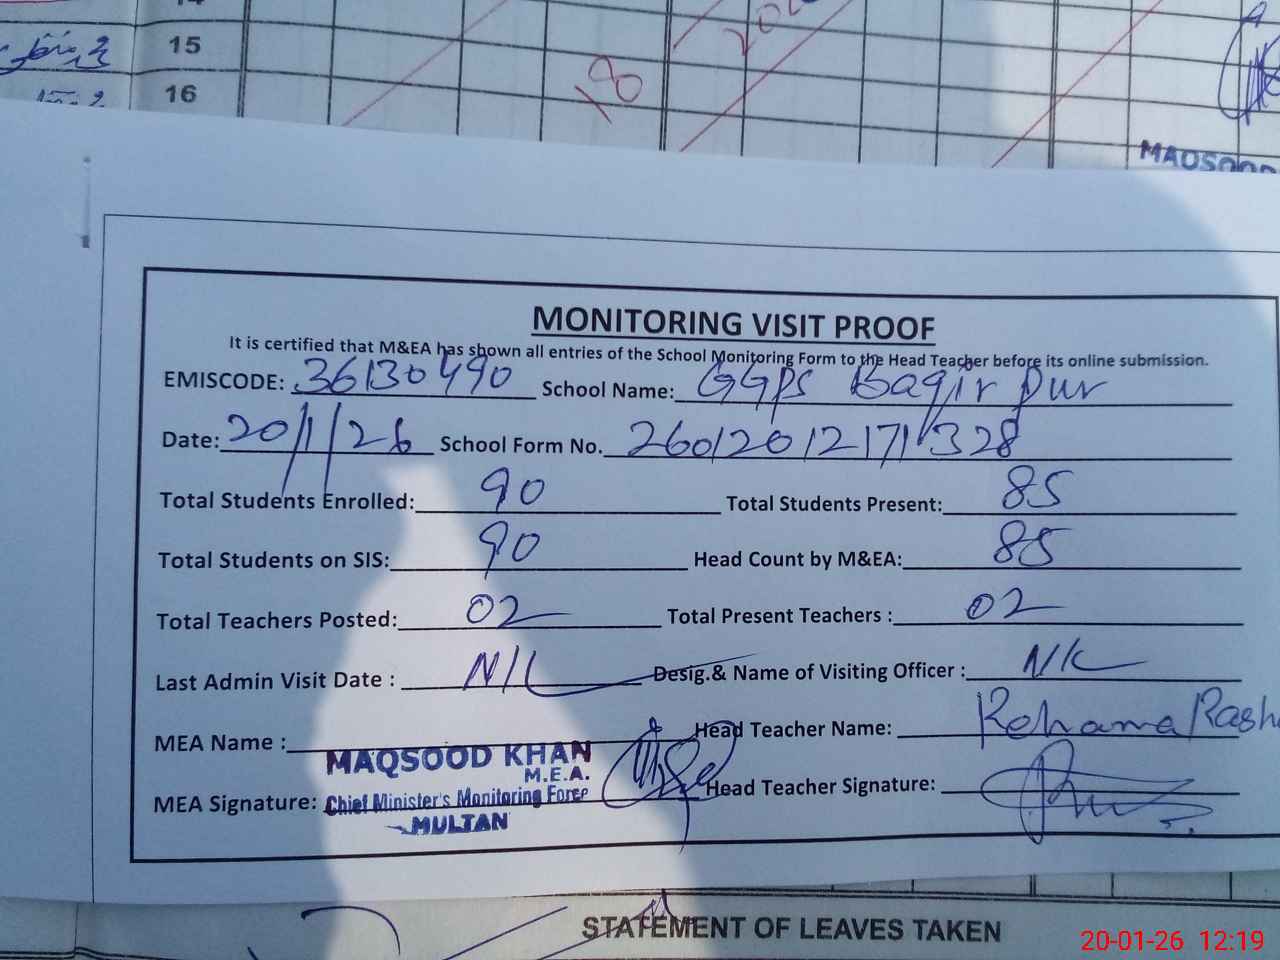 15
16
18
MAQSOOD
MONITORING VISIT PROOF
It is certified that M&EA has shown all entries of the School Monitoring Form to the Head Teacher before its online submission.
EMISCODE: 36130490 School Name: GGPS Baqir pur
Date: 20/1/26 School Form No. 260120121711328
Total Students Enrolled: 90 Total Students Present: 85
Total Students on SIS: 90 Head Count by M&EA: 85
Total Teachers Posted: 02 Total Present Teachers : 02
Last Admin Visit Date : NIL Desig.& Name of Visiting Officer : NIL
MEA Name : Head Teacher Name: Rehama Rash
MAQSOOD KHAN
M.E.A.
MEA Signature: Chief Minister's Monitoring Force Head Teacher Signature:
MULTAN
STATEMENT OF LEAVES TAKEN
20-01-26 12:19